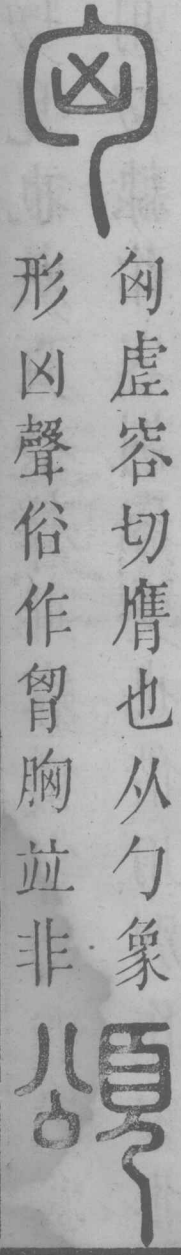 匈
匈虛容切膺也从勹象
形凶聲俗作胷胸竝非
頌